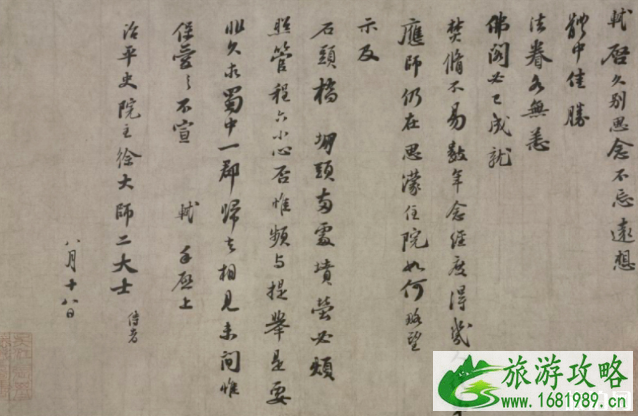 軾啓久別思念不忘遠想
體中佳勝
法眷各無恙
佛閣必已成就
焚脩不易數年念經度得幾
應師仍在思濛住院如何略望
示及
石頭橋 堋頭兩處墳塋必煩
照管程六小心否惟頻與提舉是要
非久求蜀中一郡歸去相見未間惟
保愛之不宣 軾手啓上
治平史院主徐大師二大士 侍者
八月十八日
旅游攻略
www.1681989.cn